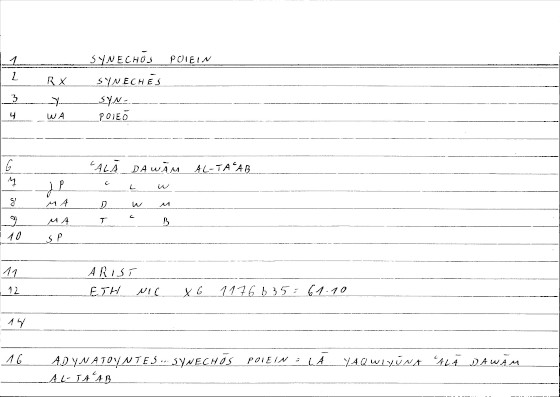 1 SYNECHŌS POIEIN
2 RX SYNECHĒS
3 Y SYN-
4 WA POIEŌ
6 ʿALĀ DAWĀM AL-TAʿAB
7 JP ʿ L W
8 MA D W M
9 MA T ʿ B
10 SP
11 ARIST
12 ETH NIC X6 1176b35 = 61.10
14
16 ADYNATOYNTES.. SYNECHŌS POIEIN = LĀ YAQWIYŪNA ʿALĀ DAWĀM
AL-TAʿAB